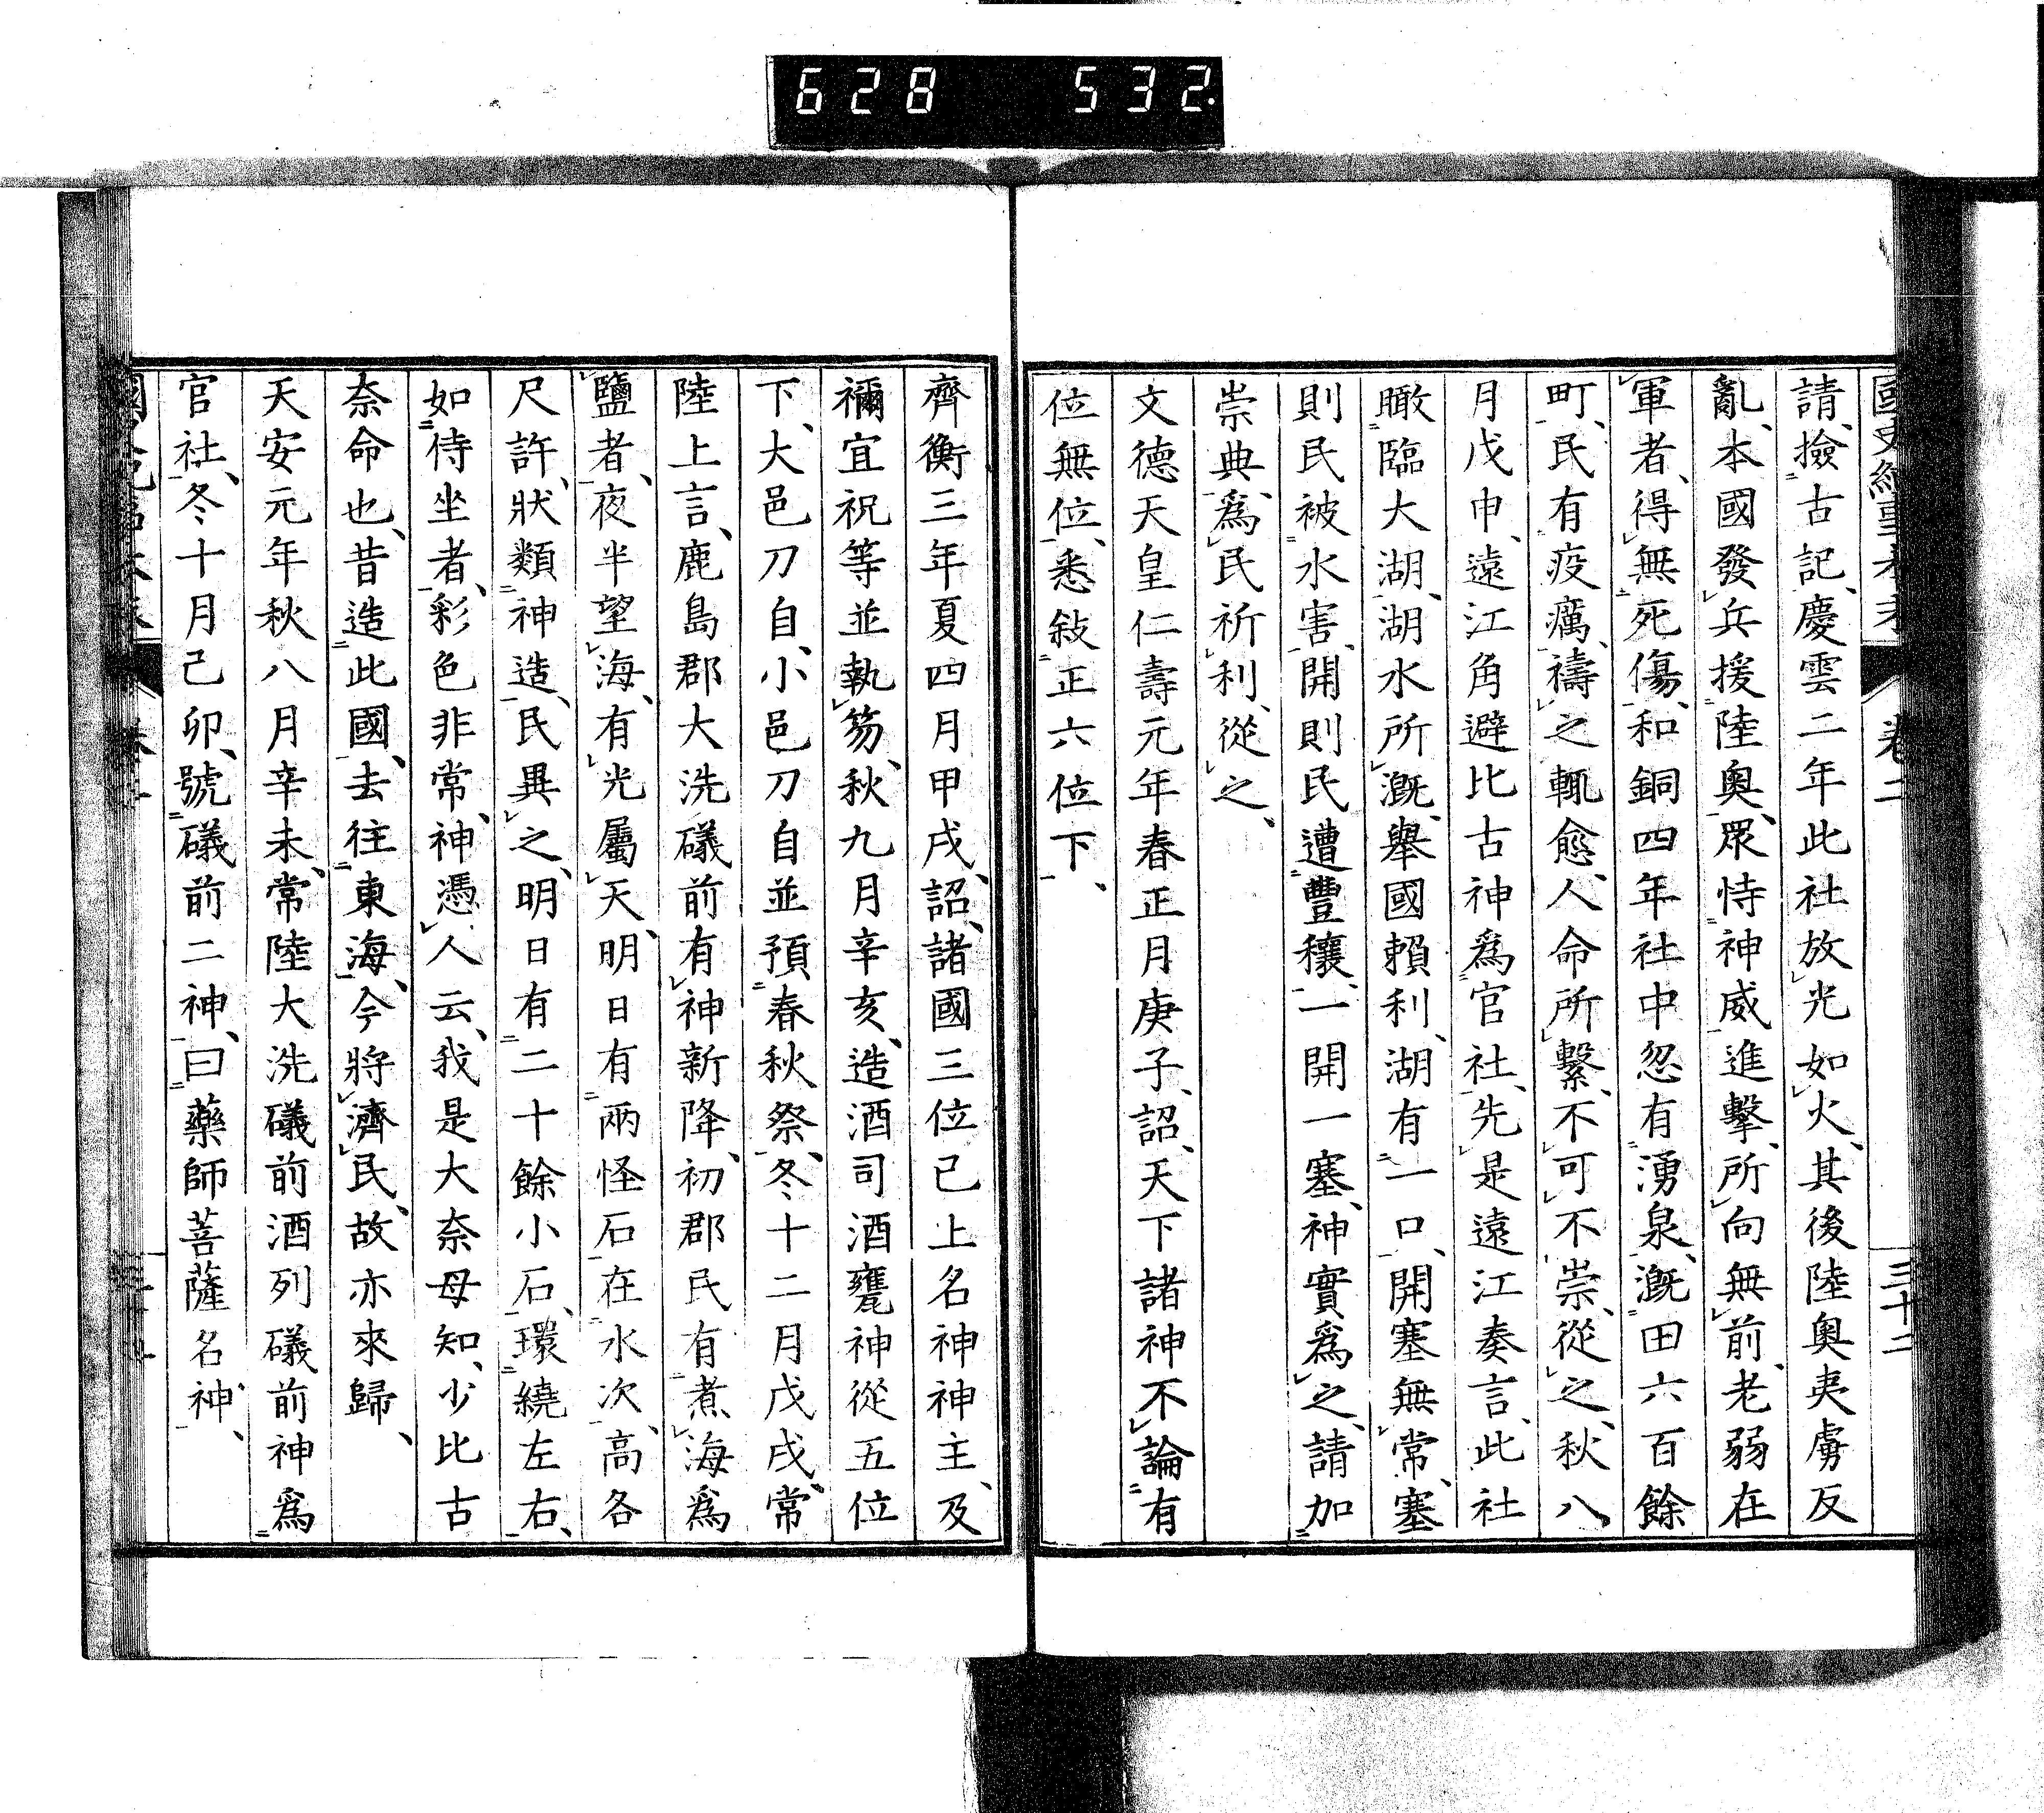 628 532
卷二
三十二
請、撿古記、慶雲二年此社放光如火、其後陸奧夷虜反
亂、本國發兵援陸奧、眾恃神威進擊、所向無前、老弱在
軍者、得無死傷、和銅四年社中忽有湧泉、漑田六百餘
町、民有疫癘、禱之輒愈、人命所繫、不可不崇、從之、秋八
月戊申、遠江角避比古神爲官社、先是遠江奏言、此社
瞰臨大湖、湖水所漑、舉國賴利、湖有一口、開塞無常、塞
則民被水害、開則民遭豐穰、一開一塞、神實爲之、請加
崇典、爲民祈利、從之、
文德天皇仁壽元年春正月庚子、詔、天下諸神不論有
位無位、悉敍正六位下、
齊衡三年夏四月甲戌、詔、諸國三位已上名神神主、及
禰宜祝等並執笏、秋九月辛亥、造酒司酒甕神從五位
下、大邑刀自、小邑刀自並預春秋祭、冬十二月戊戌、常
陸上言、鹿島郡大洗礒前有神新降、初郡民有煮海爲
鹽者、夜半望海、有光屬天、明日有兩怪石在水次、高各
尺許、狀類神造、民異之、明日有二十餘小石、環繞左右、
如侍坐者、彩色非常、神憑人云、我是大奈母知、少比古
奈命也、昔造此國、去往東海、今將濟民、故亦來歸、
天安元年秋八月辛未、常陸大洗礒前酒列礒前神爲
官社、冬十月己卯、號礒前二神、曰藥師菩薩名神、